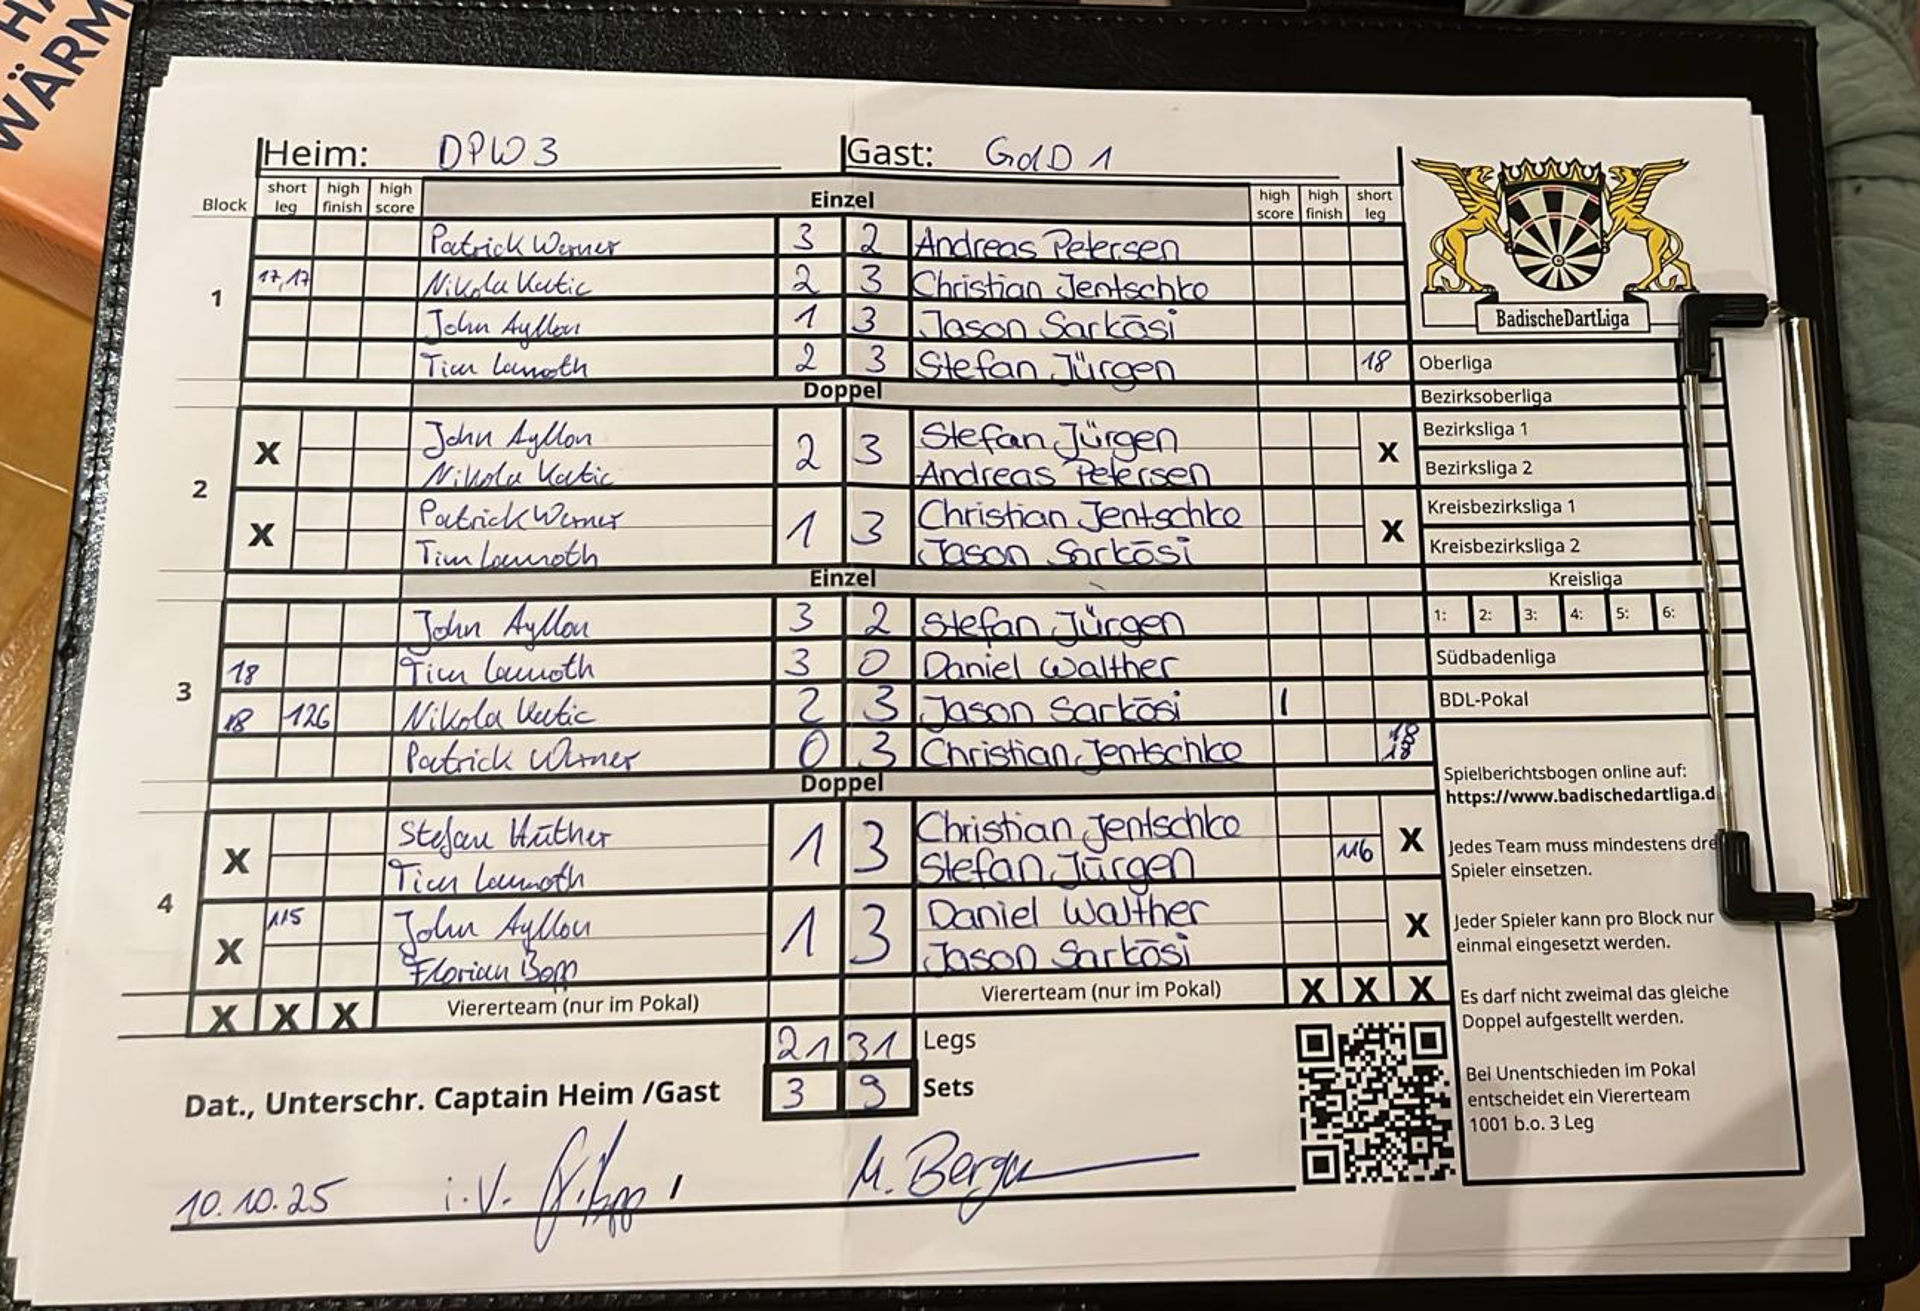 WÄRM
Heim: DPW 3 Gast: GdD 1
Block short leg high finish high score Einzel high score high finish short leg
1
Patrick Werner 3 2 Andreas Petersen
17,17 Nikola Katic 2 3 Christian Jentschke
John Ayllon 1 3 Jason Sarkösi
Tim Lamoth 2 3 Stefan Jürgen 18
Doppel
2
X John Ayllon 2 3 Stefan Jürgen X
Nikola Katic Andreas Petersen
X Patrick Werner 1 3 Christian Jentschke X
Tim Lamoth Jason Sarkösi
Einzel
3
John Ayllon 3 2 Stefan Jürgen
18 Tim Lamoth 3 0 Daniel Walther
18 126 Nikola Katic 2 3 Jason Sarkösi 1
Patrick Werner 0 3 Christian Jentschke 18 18
Doppel
4
X Stefan Hüther 1 3 Christian Jentschke X
Tim Lamoth Stefan Jürgen 116
X 115 John Ayllon 1 3 Daniel Walther X
Florian Bopp Jason Sarkösi
X X X Viererteam (nur im Pokal) Viererteam (nur im Pokal) X X X
21 31 Legs
3 9 Sets
Dat., Unterschr. Captain Heim /Gast
10.10.25 i.V. M. Berger
BadischeDartLiga
Oberliga
Bezirksoberliga
Bezirksliga 1
Bezirksliga 2
Kreisbezirksliga 1
Kreisbezirksliga 2
Kreisliga
1: 2: 3: 4: 5: 6:
Südbadenliga
BDL-Pokal
Spielberichtsbogen online auf:
https://www.badischedartliga.d
Jedes Team muss mindestens dre
Spieler einsetzen.
Jeder Spieler kann pro Block nur
einmal eingesetzt werden.
Es darf nicht zweimal das gleiche
Doppel aufgestellt werden.
Bei Unentschieden im Pokal
entscheidet ein Viererteam
1001 b.o. 3 Leg